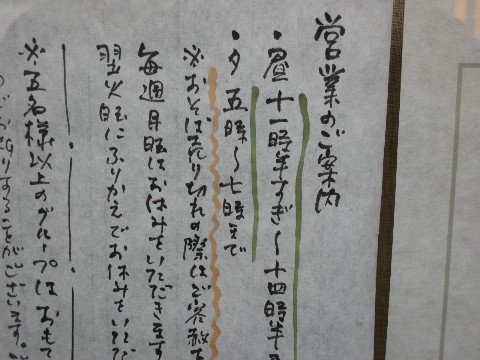 営業のご案内
・昼 十一時半すぎ〜十四時半
・夕 五時〜七時まで
※おそば売り切れの際はご容赦
毎週月曜はお休みをいただきます
翌火曜にふりかえでお休みをいただ
※五名様以上のグループはおもて
りすることがございます。